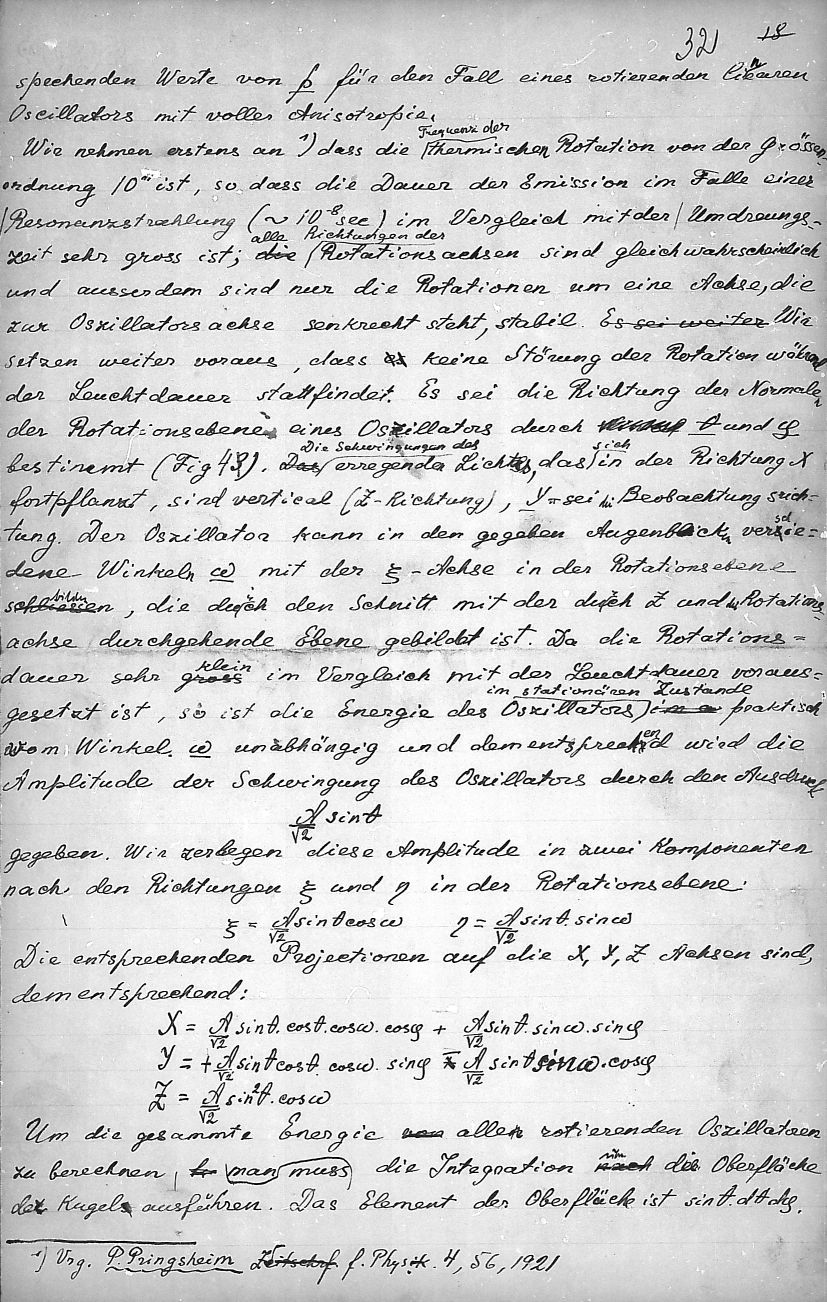 321 18
sprechenden Werte von p für den Fall eines rotierenden linearen
Oscillators mit voller Anisotropie.
Frequenz der
Wir nehmen erstens an ¹) dass die thermischen Rotation von der Grössen-
ordnung ist, so dass die Dauer der Emission im Falle einer
Resonanzstrahlung (~ 10⁻⁸ sec) im Vergleich mit der Umdreungs-
alle Richtungen der
zeit sehr gross ist; die Rotationsachsen sind gleichwahrscheinlich
und ausserdem sind nur die Rotationen um eine Achse, die
zur Oszillatorsachse senkrecht steht, stabil. Es sei weiter Wir
setzen weiter voraus, dass es keine Störung der Rotation während
der Leuchtdauer stattfindet. Es sei die Richtung der Normalen
der Rotationsebene eines Oszillators durch ϑ und φ
Die Schwingungen des sich
bestimmt (Fig 43). Das erregenden Lichtes, das in der Richtung X
fortpflanzt, sind vertical (Z-Richtung), Y = sei die Beobachtungsrich-
tung. Der Oszillator kann in den gegeben Augenblick verschie=
dene Winkeln ω mit der ξ-Achse in der Rotationsebene
bilden
schliessen, die durch den Schnitt mit der durch Z und die Rotations=
achse durchgehende Ebene gebildet ist. Da die Rotations=
klein
dauer sehr gross im Vergleich mit der Leuchtdauer voraus=
im stationären Zustande
gesetzt ist, so ist die Energie des Oszillators im a praktisch
vom Winkel ω unabhängig und dementsprechend wird die
Amplitude der Schwingung des Oszillators durch den Ausdruck
A/√2 sinϑ
gegeben. Wir zerlegen diese Amplitude in zwei Komponenten
nach den Richtungen ξ und η in der Rotationsebene:
ξ = A/√2 sinϑ cosω η = A/√2 sinϑ. sinω
Die entsprechenden Projectionen auf die X, Y, Z Achsen sind,
dementsprechend:
X = A/√2 sinϑ. cosϑ. cosω. cosφ + A/√2 sinϑ. sinω. sinφ
Y = + A/√2 sinϑ cosϑ. cosω. sinφ ∓ A/√2 sinϑ sinω. cosφ
Z = A/√2 sin²ϑ. cosω
Um die gesammte Energie von allen rotierenden Oszillatoren
zu berechnen, man muss die Integration nach die Oberfläche
der Kugel ausführen. Das Element der Oberfläche ist sinϑ. dϑ dφ.
¹) Vrg. P. Pringsheim Zeitschrf f. Physik. 4, 56, 1921